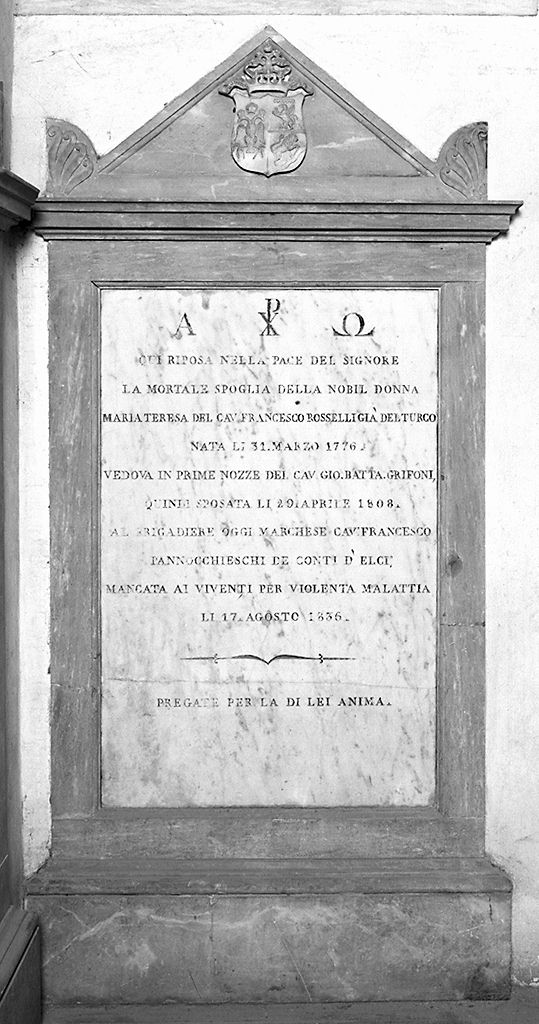 Α ☧ Ω
QUI RIPOSA NELLA PACE DEL SIGNORE
LA MORTALE SPOGLIA DELLA NOBIL DONNA
MARIA TERESA DEL CAV. FRANCESCO ROSSELLI GIÀ DEL TURCO
NATA LI 31. MARZO 1776.
VEDOVA IN PRIME NOZZE DEL CAV. GIO. BATTA. GRIFONI,
QUINDI SPOSATA LI 29. APRILE 1808.
AL BRIGADIERE OGGI MARCHESE CAV. FRANCESCO
PANNOCCHIESCHI DE CONTI D'ELCI,
MANCATA AI VIVENTI PER VIOLENTA MALATTIA
LI 17. AGOSTO 1836.
PREGATE PER LA DI LEI ANIMA.